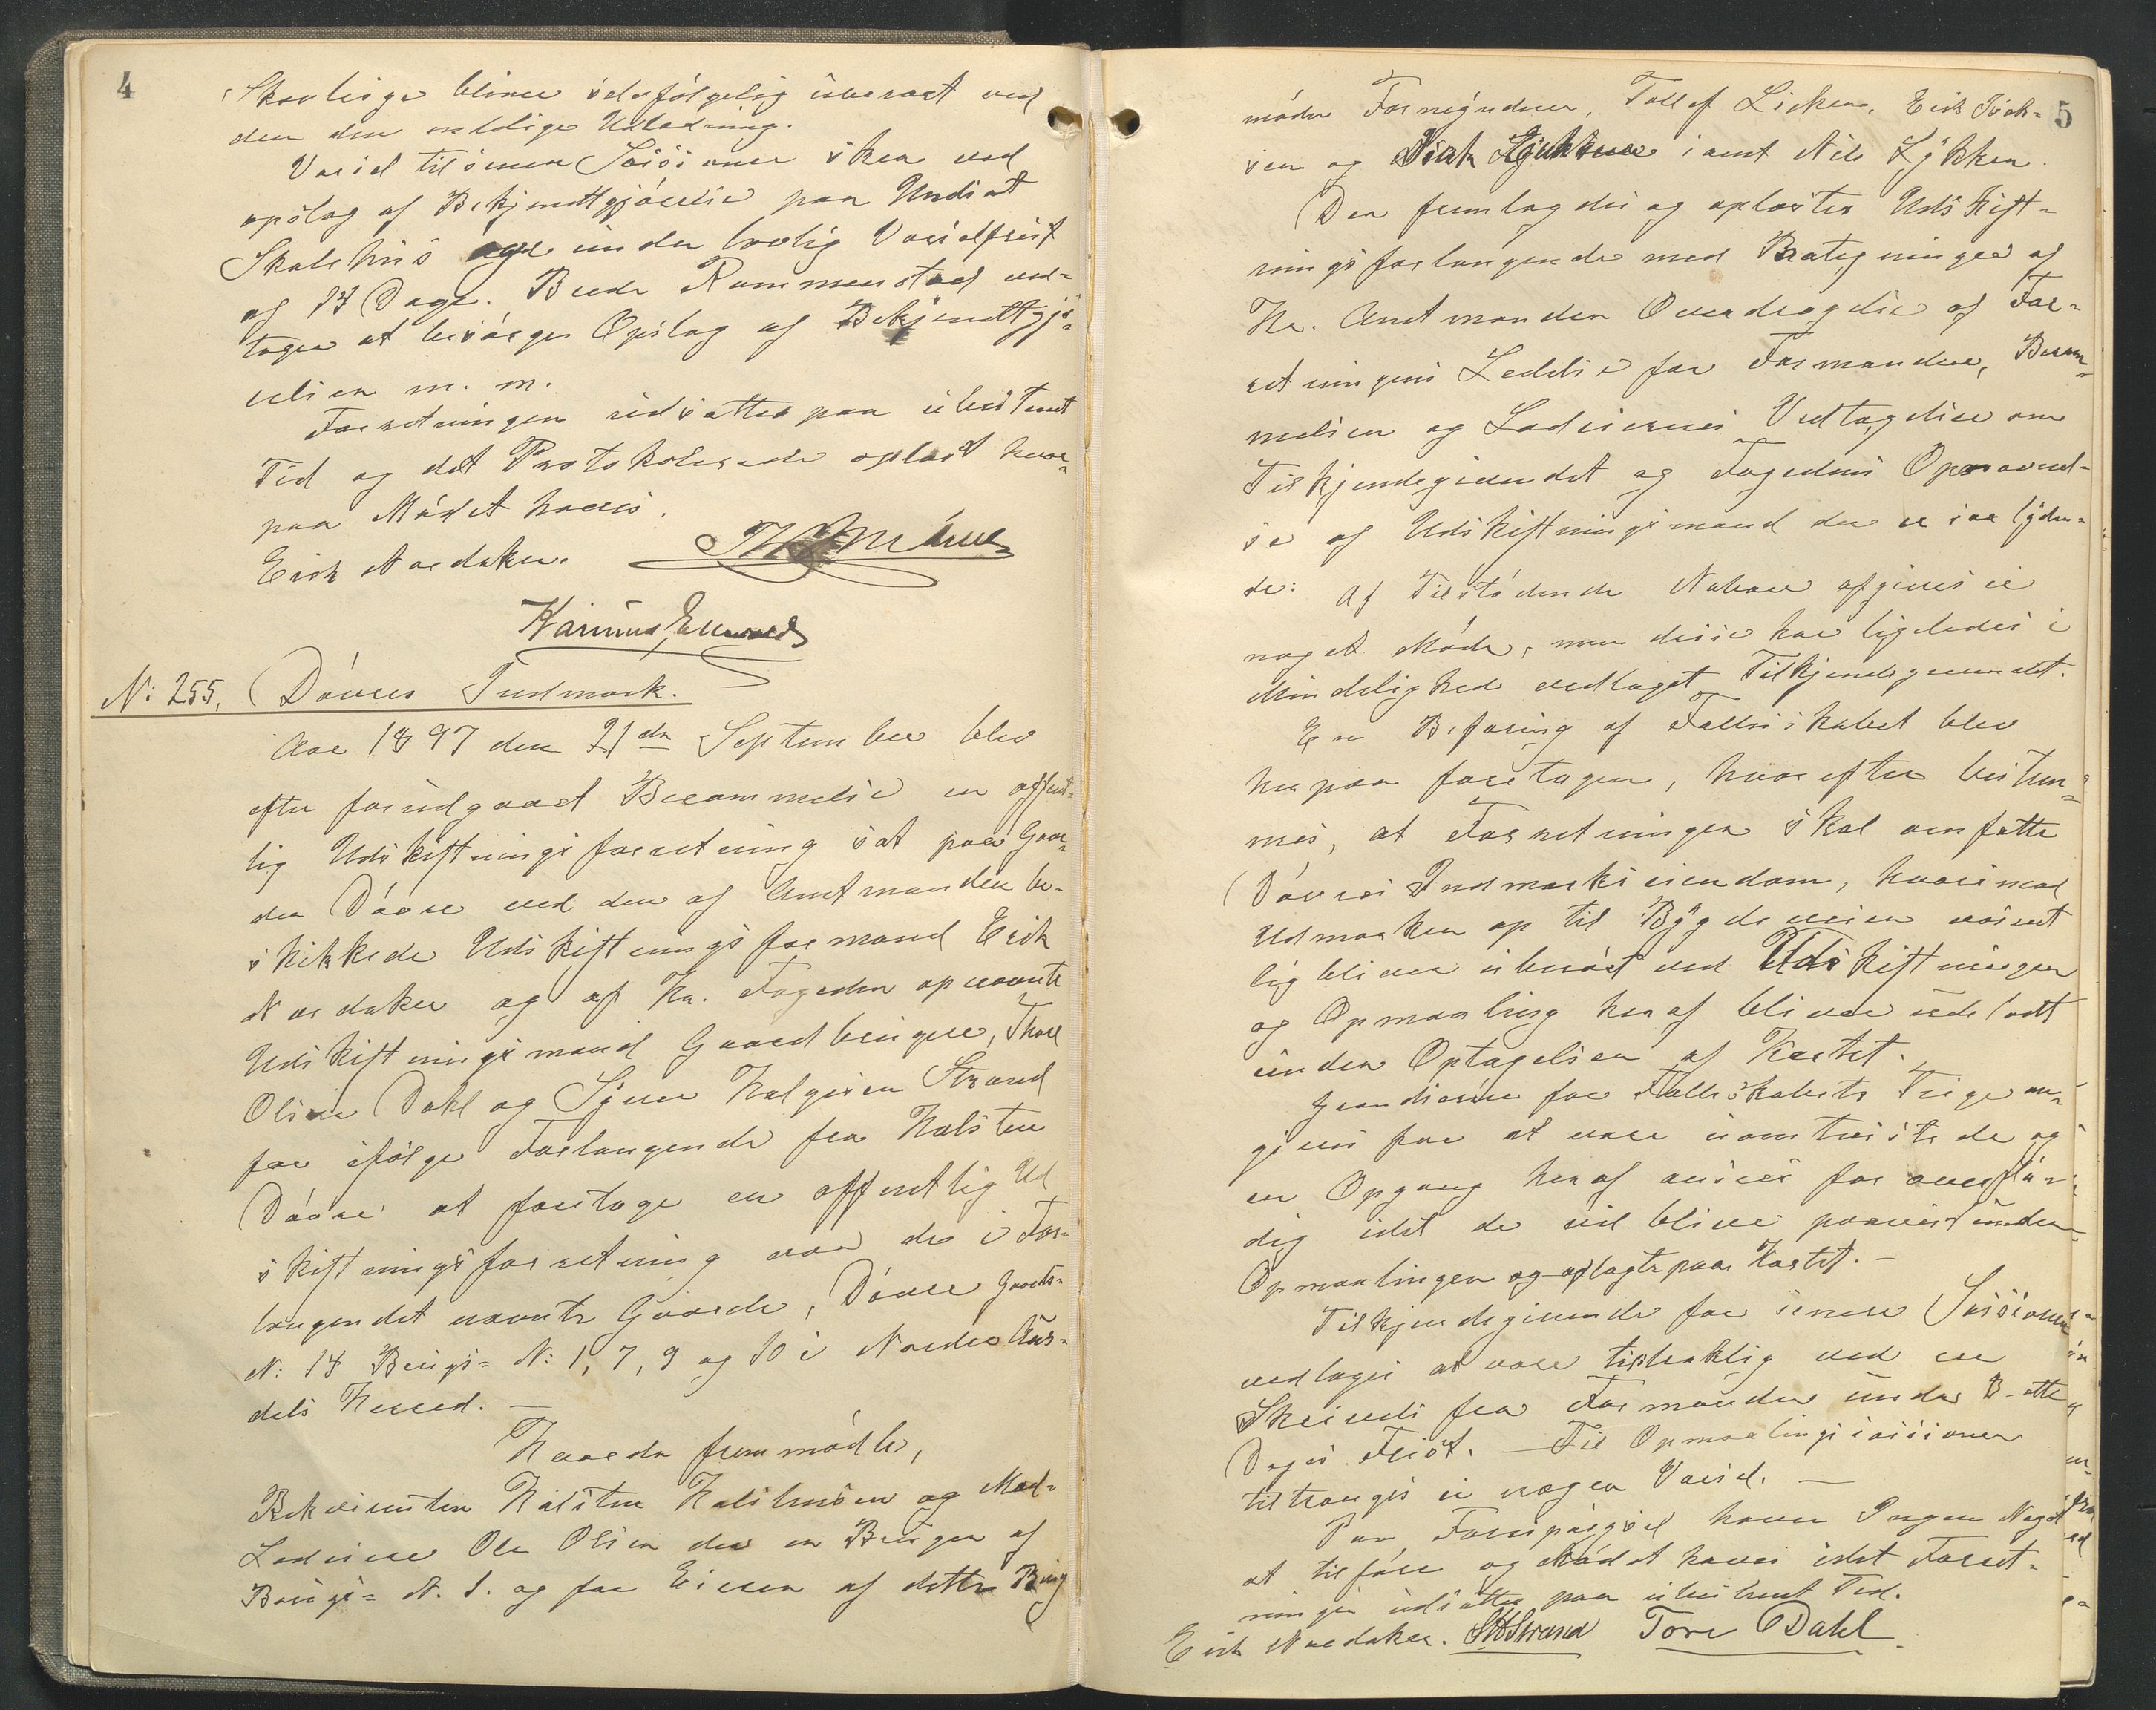 4
Skovteige bliver selvfølgelig ubenævt ved
den den endelige Udlodning.
Varsel til senere Sessioner sker ved
opslag af Bekjendtgjørelse paa Undset
Skolehus under lovlig Varselfrist
af 14 Dage. Brede Rommenstad ved-
tager at besørge Opslag af Bekjendtgjø-
relsen m. m.
Forretningen udsættes paa ubestemt
Tid og det Protokolerede oplæst hvor-
paa Mødet hæves.
Erik Nordaker.
N: 255. Døvres Indmark.
Aar 1897 den 21de September blev
efter forudgaaet Berammelse en offent-
lig Udskiftningsforretning sat paa Gaar-
den Døvre ved den af Amtmanden be-
skikkede Udskiftningsformand Erik
Nordaker og af Hr. Fogden opnævnte
Udskiftningsmænd Gaardbrugere, Thore
Olsen Dahl og Syver Halgesen Strand
for ifølge Forlangende fra Halsten
Døvre at foretage en offentlig Ud
skiftningsforretning over de i For-
langendet nævnte Gaarde, Døvre Gaards-
N: 14 Brugs- N: 1, 7, 9 og 10 i Nordre Aur-
dals Herred. —
Hvorda fremmødte,
Rekvirenten Halsten Halstensen og Med-
Lodeiere Ole Olsen der er Bruger af
Brugs- N. 1. og for Eieren af dette Brug
5
møder Formynderen, Tollef Lieken, Erik Isak-
sen og Isak samt Nils Lykken.
Der fremlagdes og oplæstes Udskift-
ningsforlangende med Paategninger af
Hr. Amtmanden Overdragelse af For-
retningens Ledelse for Formanden, Beram-
melsen og Lodeiernes Vedtagelse om
Tilkjendegivendet og Fogdens Opnævnel-
se af Udskiftningsmænd der er saa lyden-
de: Af Tilstødende Naboer afgives ei
noget Møde, men disse har ligeledes i
Mindelighed vedtaget Tilkjendegivendet.
En Befaring af Fellesskabet blev
herpaa foretagen, hvorefter bestem-
mes, at Forretningen skal omfatte
Døvres Indmarkseiendom, hvorimod
Udmarken op til Bygdeveien
lig bliver uberørt ved Udskiftningen
og Opmaaling heraf bliver udeladt
under Optagelsen af Kartet.
Grændserne for Fellesskabets Teige an-
gives for at være uomtvistede og
en Opgang heraf ansees for overflø-
dig idet de vil blive paavist under
Opmaalingen og aflagte paa Kartet. —
Tilkjendegivende for senere Sessioner
vedtages at være tilstrækkelig ved en
Skrivels fra Formanden under 8-otte
Dages Frist. — Til Opmaalingssessionen
tiltrænges ei nogen Varsel. —
Paa Forespørgsel havde Ingen Noget
at tilføre og Mødet hæves idet Forret-
ningen udsættes paa ubestemt Tid.
Erik Nordaker. SHStrand Tore Dahl